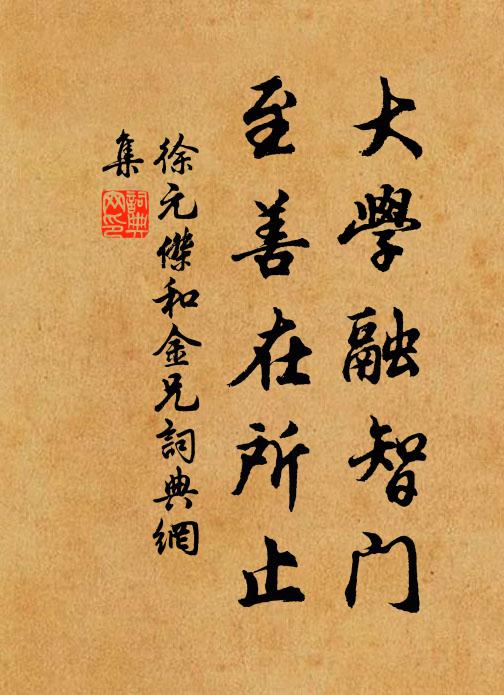 大學融智門
至善在所止
徐元傑和金兄詞典網
集
詞典網印